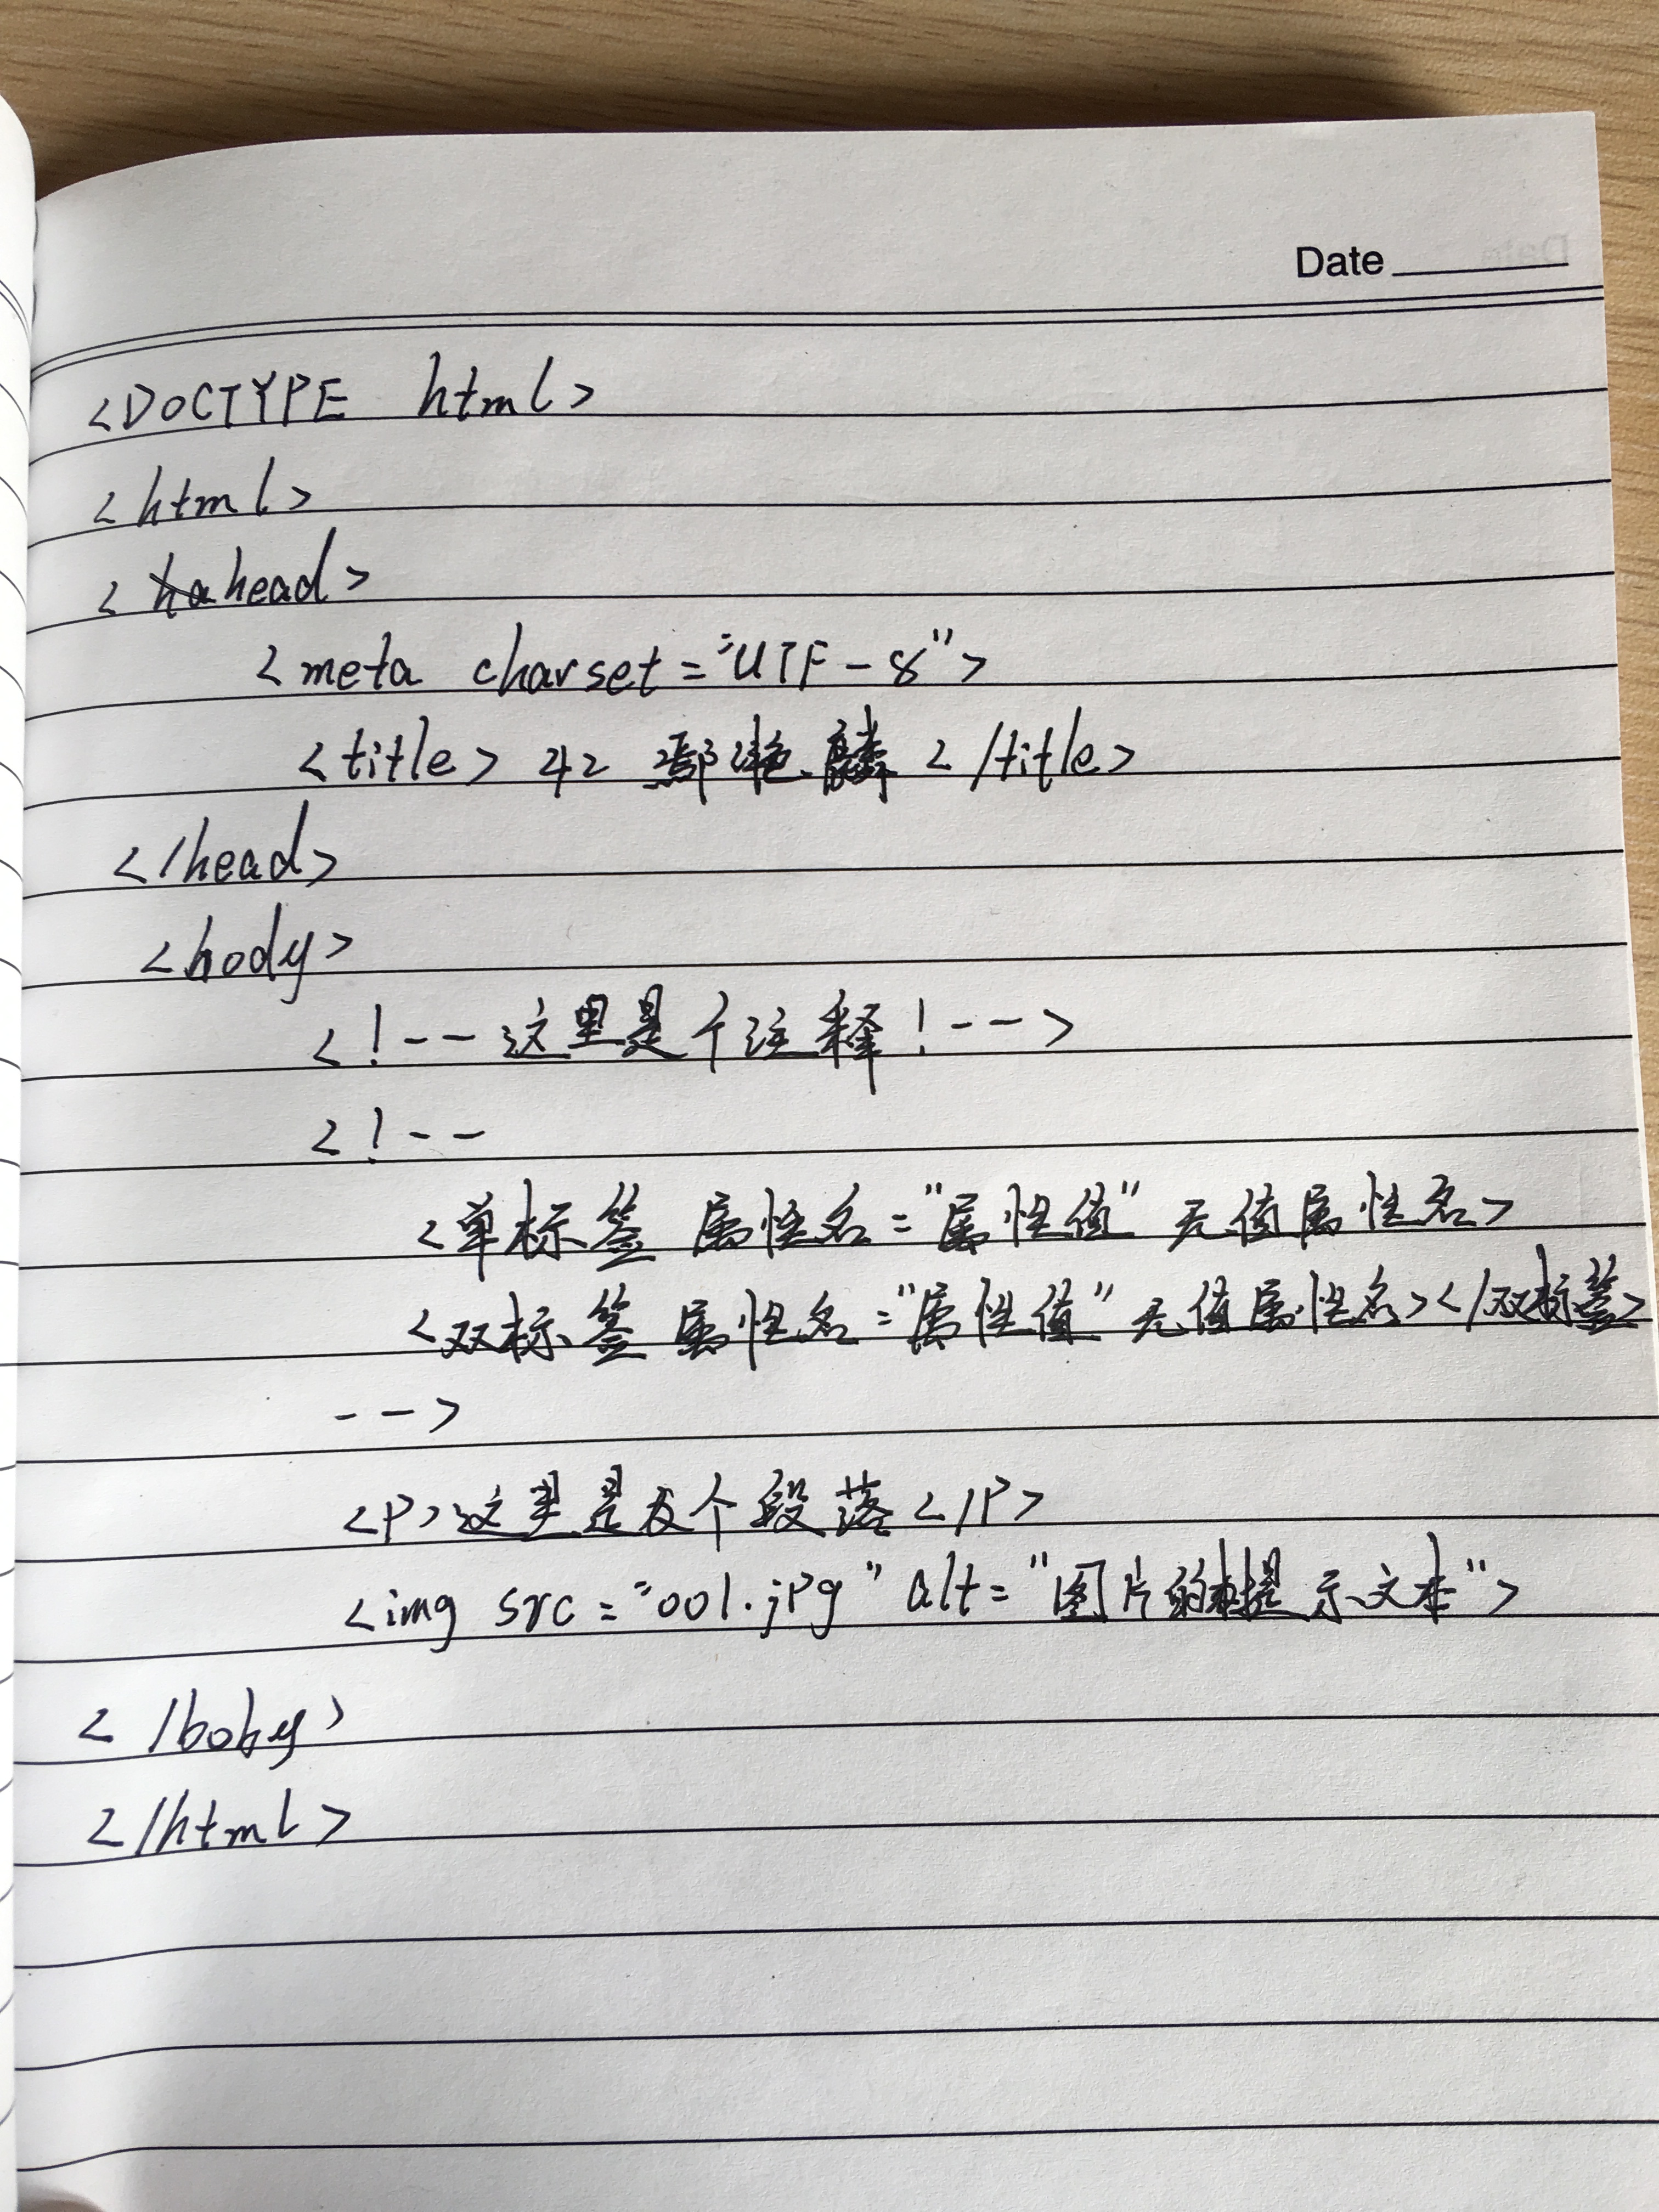 Date
<DOCTYPE html>
<html>
<head>
<meta charset="UTF-8">
<title> 42 鄢艳麟 </title>
</head>
<body>
<!--这里是个注释!-->
<!--
<单标签 属性名="属性值" 无值属性名>
<双标签 属性名="属性值" 无值属性名></双标签>
-->
<P>这里是个段落</P>
<img src="001.jpg" alt="图片的提示文本">
</boby>
</html>